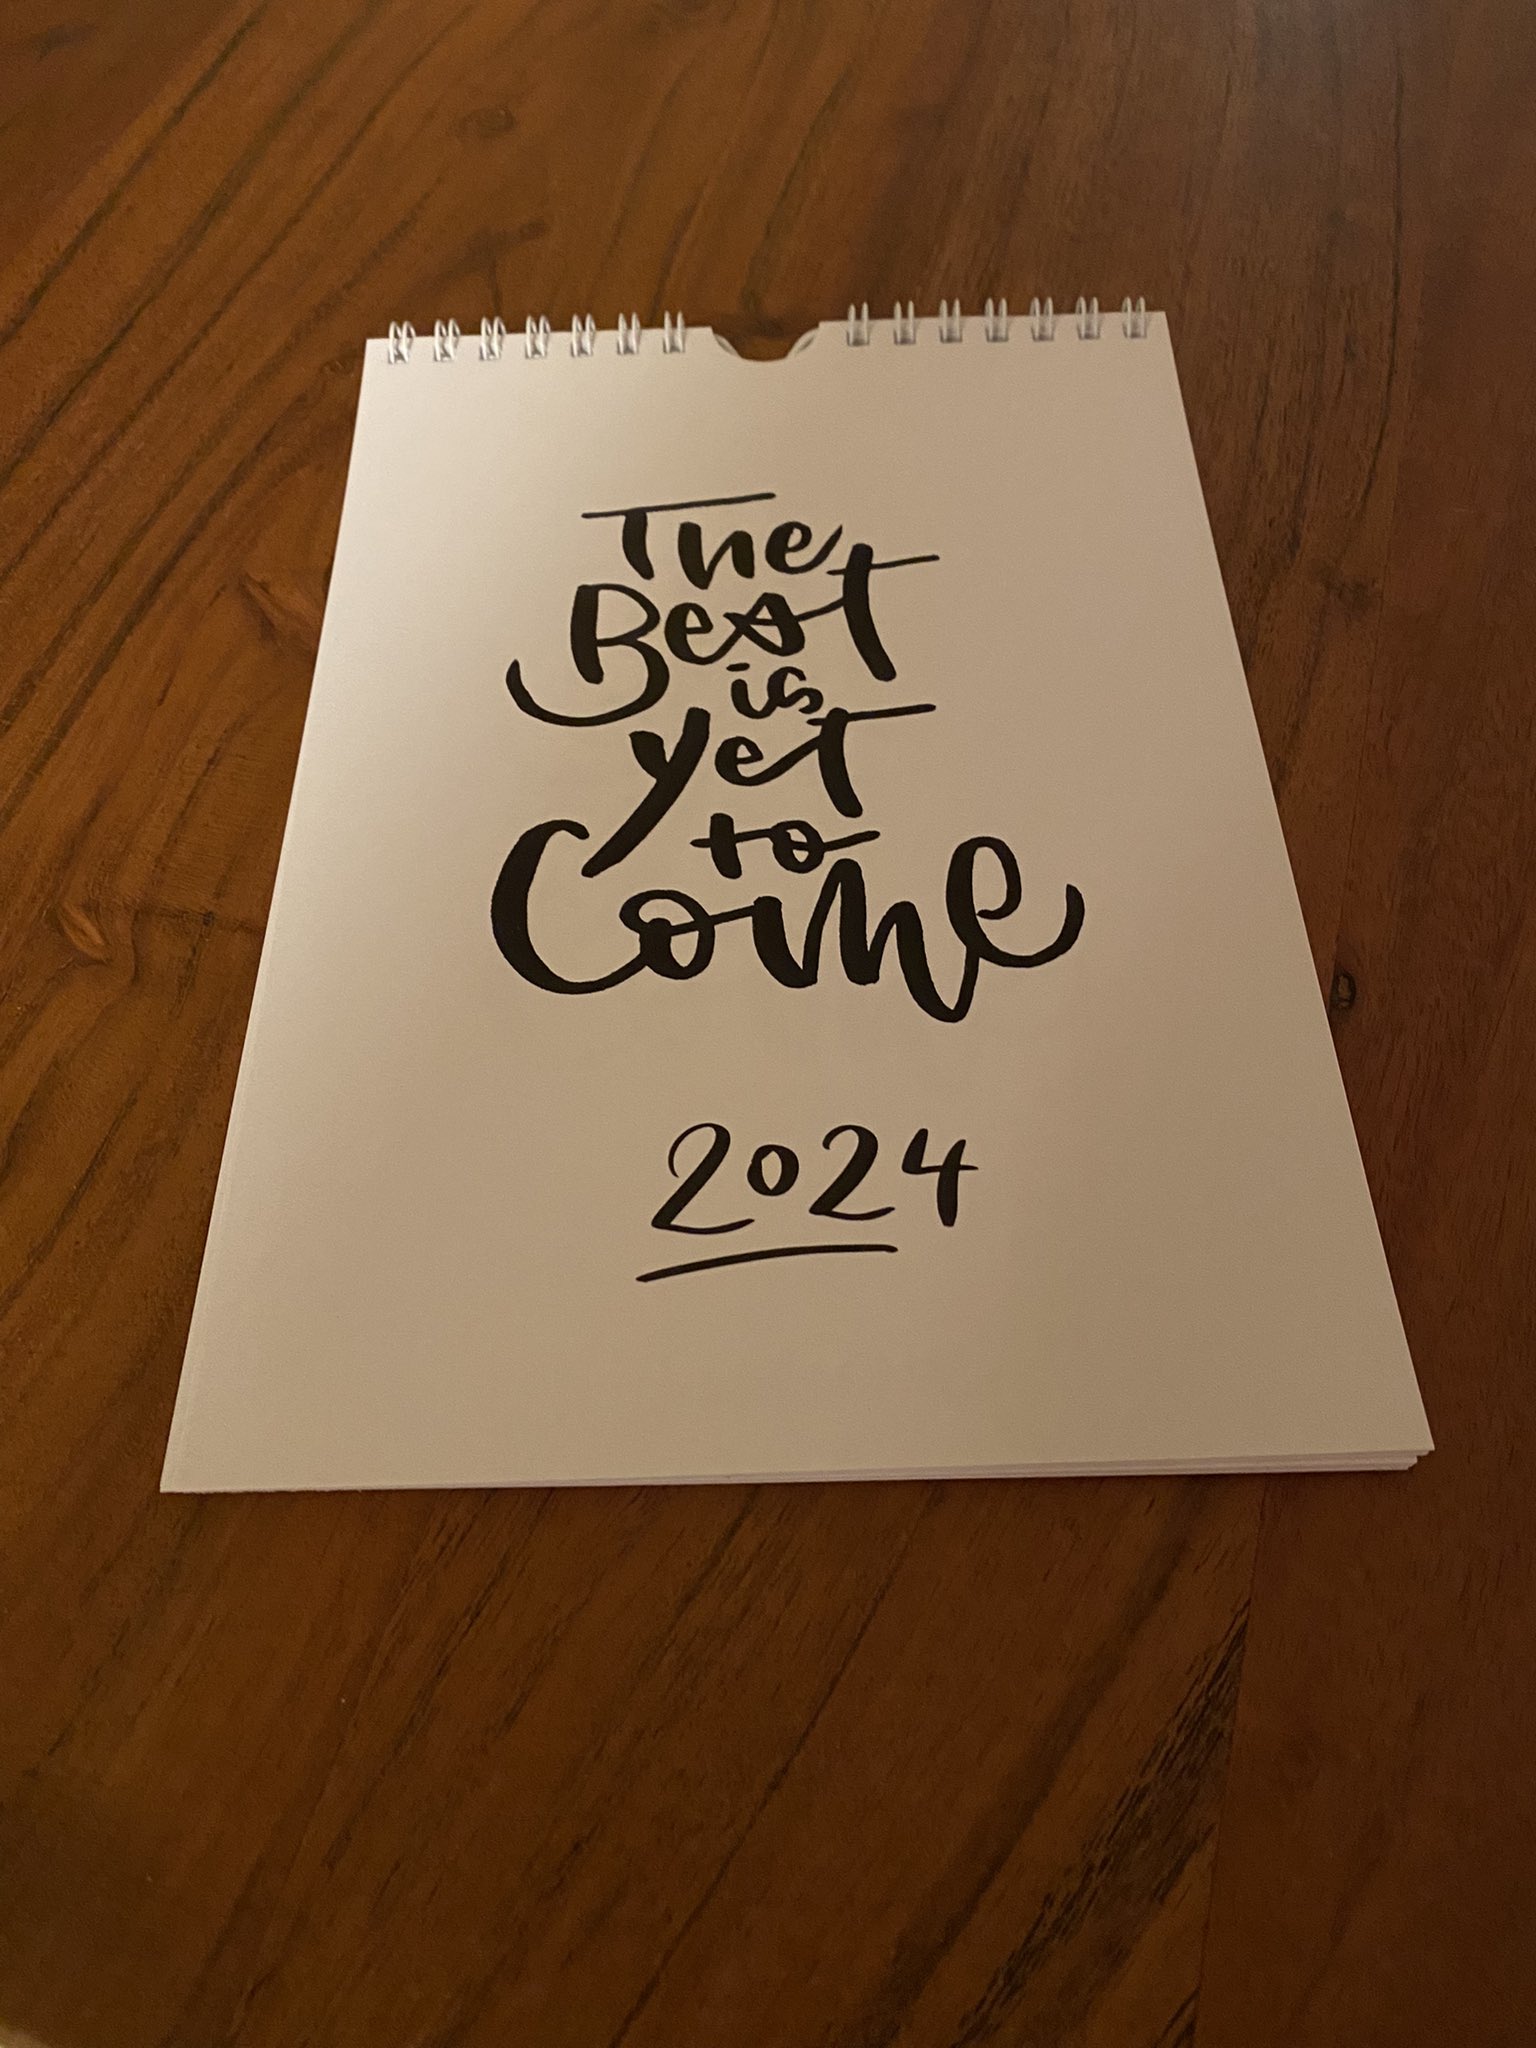 The
Best
is
yet
to
Come
2024